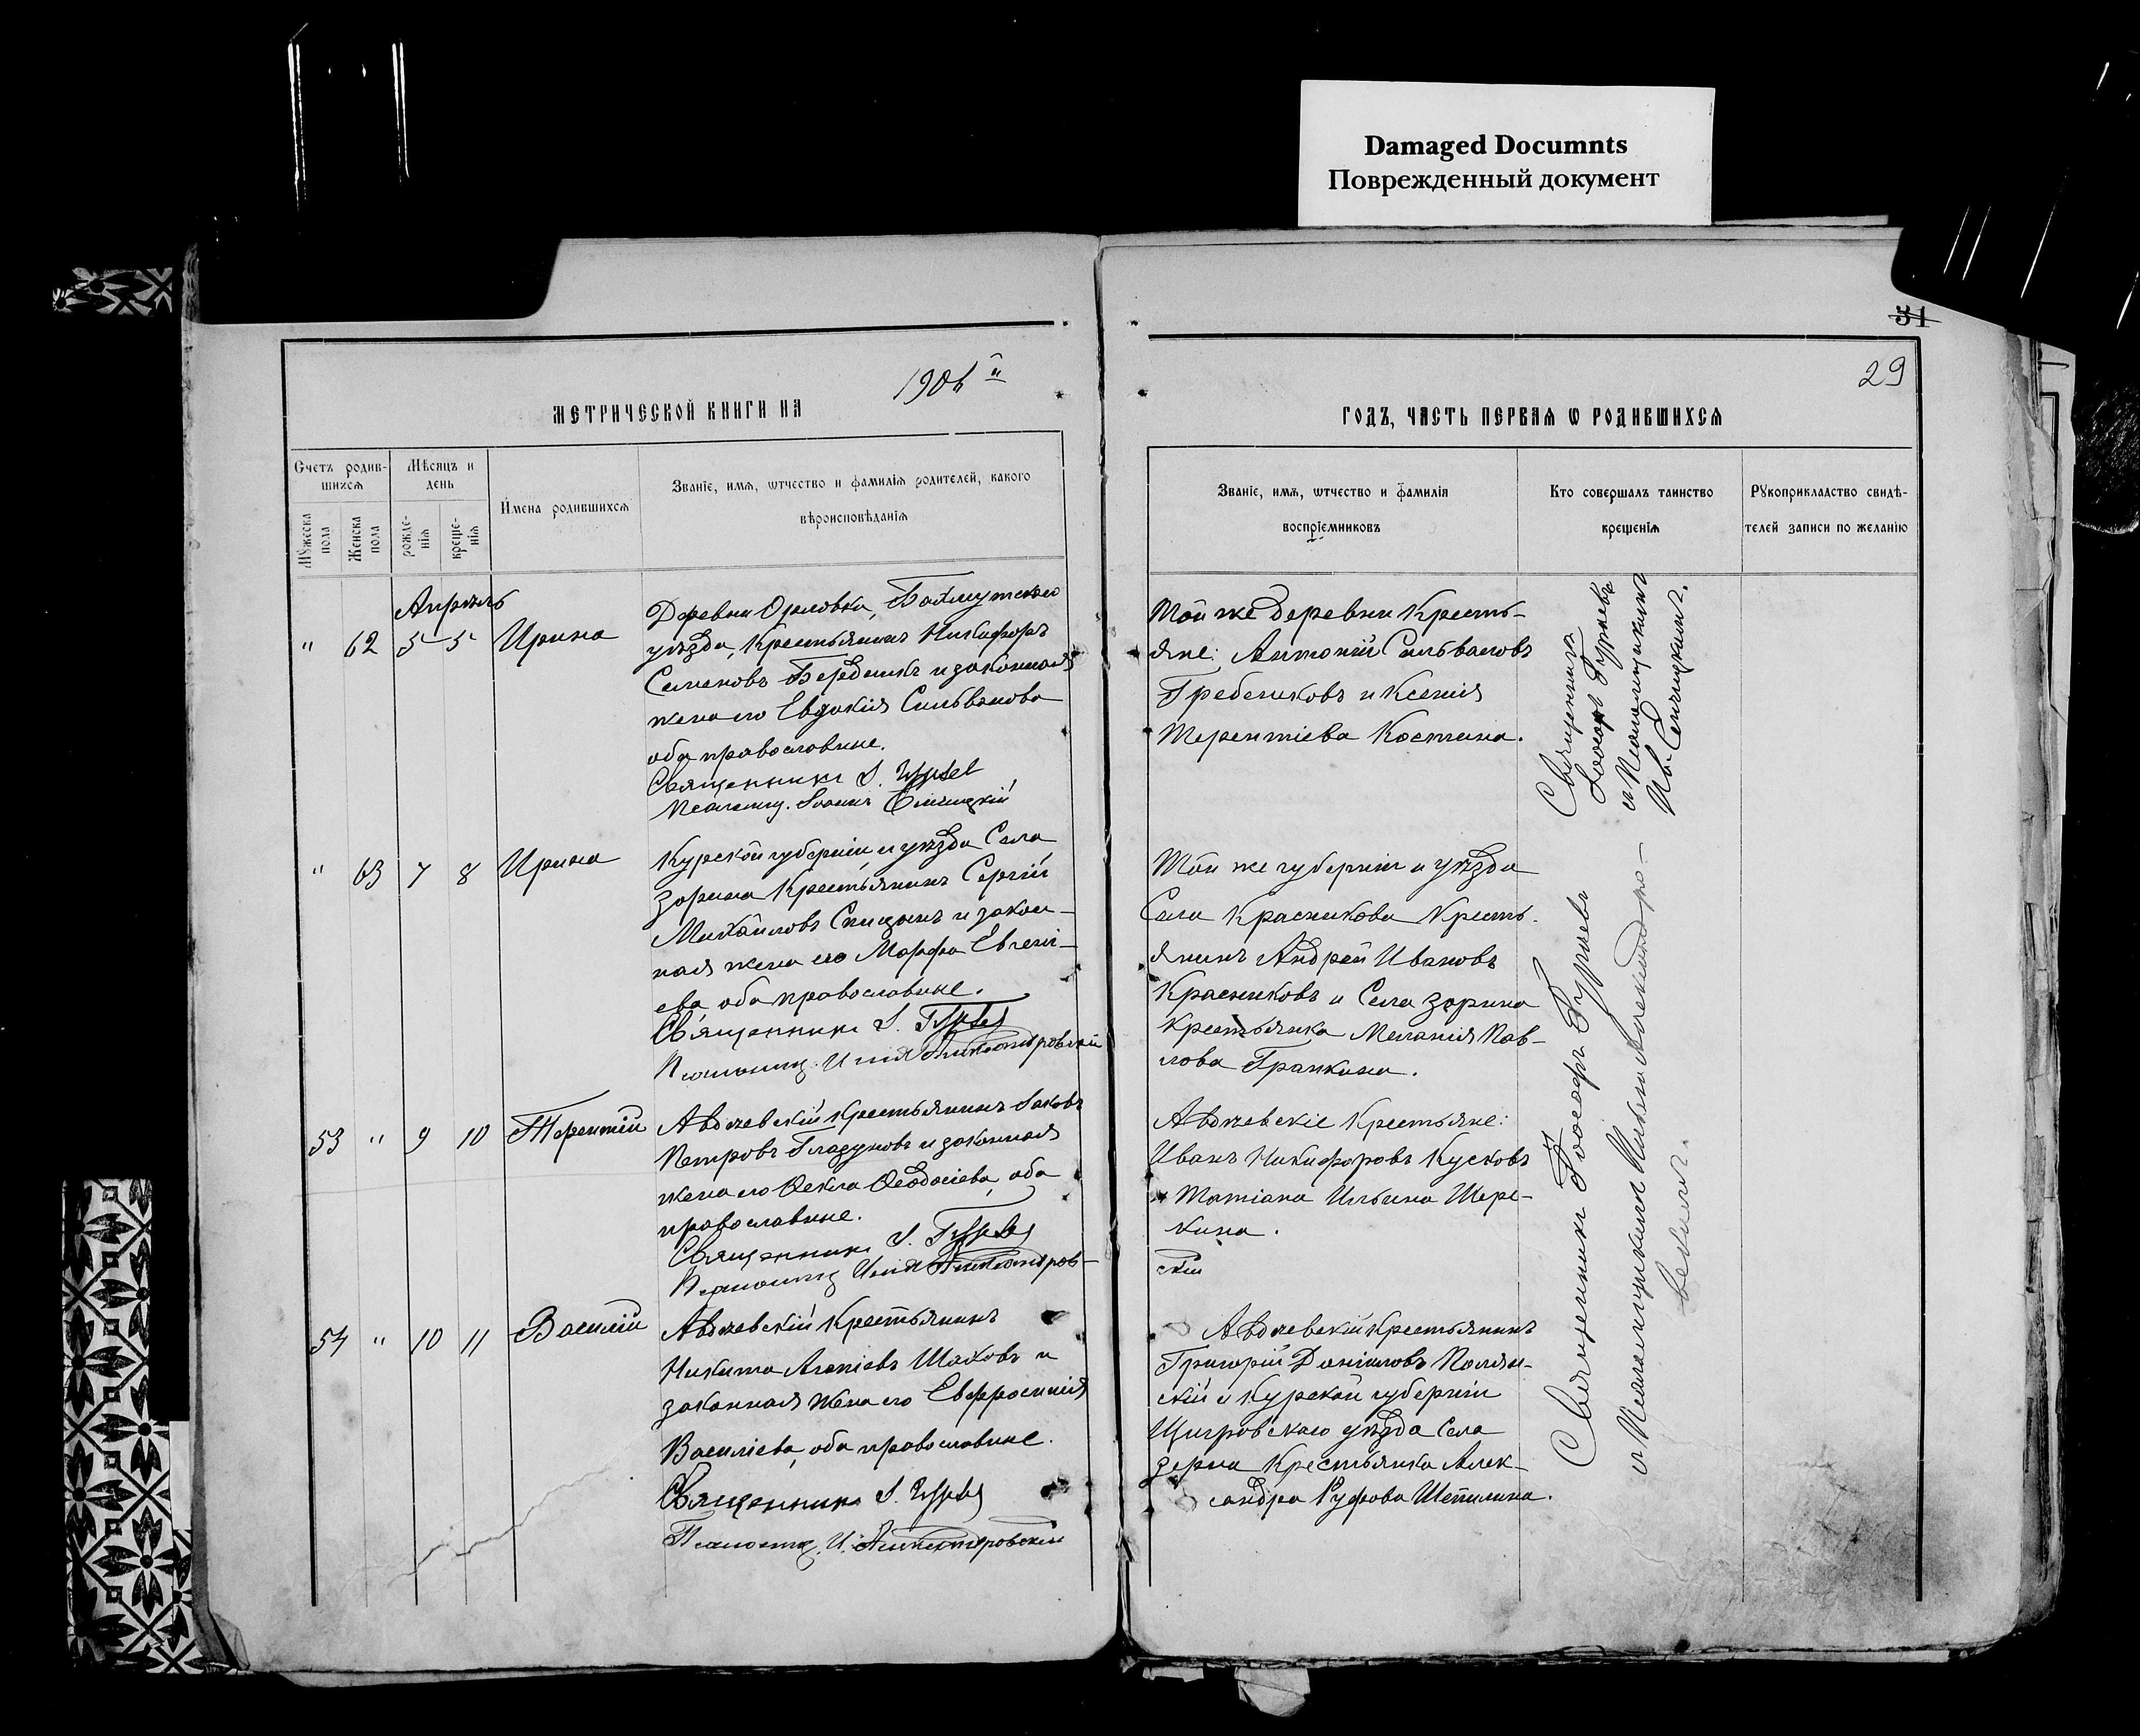 Damaged Documnts
Поврежденный документ
31
1906 й
29
МЕТРИЧЕСКОЙ КНИГИ НА
ГОДЪ, ЧАСТЬ ПЕРВАЯ Ѡ РОДИВШИХСЯ
Счетъ родив-
шихся
Мѣсяцъ и
день
Мужеска
пола
Женска
пола
рожде-
нія
креще-
нія
Имена родившихся
Званіе, имя, ѡтчество и фамилія родителей, какого
вѣроисповѣданія
Званіе, имя, ѡтчество и фамилія
воспріемниковъ
Кто совершалъ таинство
крещенія
Рукоприкладство свидѣ-
телей записи по желанію
Апрѣль
" 62 5 5 Ирина
Деревни Орловка, Бахмутскаго
уѣзда, Крестьянинъ Никифоръ
Семеновъ и законная
жена его Евдокія Сильванова
оба православные.
Священникъ І. Гурьев
Псаломщ. Іоаннъ
Той же деревни Кресть-
яне: Антоній Сильвановъ
Гребениковъ и Ксенія
Терентіева Костина.
Священникъ
Іосифъ Гурьевъ
съ Псаломщикомъ
" 63 7 8 Ирина
Курской губерніи и уѣзда Села
Зорина Крестьянинъ Сергій
Михайловъ Спицынъ и закон-
ная жена его Марфа Евгені-
ева, оба православные.
Священникъ І. Гурьев
Псаломщ. Илія Александровскій
Той же губерніи и уѣзда
Села Красникова Кресть-
янинъ Андрей Ивановъ
Красниковъ и Села Зорина
Крестьянка Меланія Пав-
лова Гранкина.
53 " 9 10 Терентій
Авдѣевскій Крестьянинъ Іаковъ
Петровъ Гладуновъ и законная
жена его Ѳекла Ѳеодосіева, оба
православные.
Священникъ І. Гурьев
Псаломщ Илія Александров-
Авдѣевскіе Крестьяне:
Иванъ Никифоровъ Кусковъ
и Татіана Ильина Шере-
кина.
скій
54 " 10 11 Василій
Авдѣевскій Крестьянинъ
Никита Агапіевъ Шаховъ и
законная жена его Евфросинія
Василіева, оба православные.
Священникъ І. Гурьев
Псаломщ. И. Александровскій
Авдѣевскій Крестьянинъ
Григорій Даніиловъ Полян-
скій и Курской губерніи
Щигровскаго уѣзда села
Крестьянка Алек-
сандра Руфова Шепилина.
Священникъ Іосифъ Гурьевъ
съ Псаломщикомъ Ильею Александро-
вскимъ.